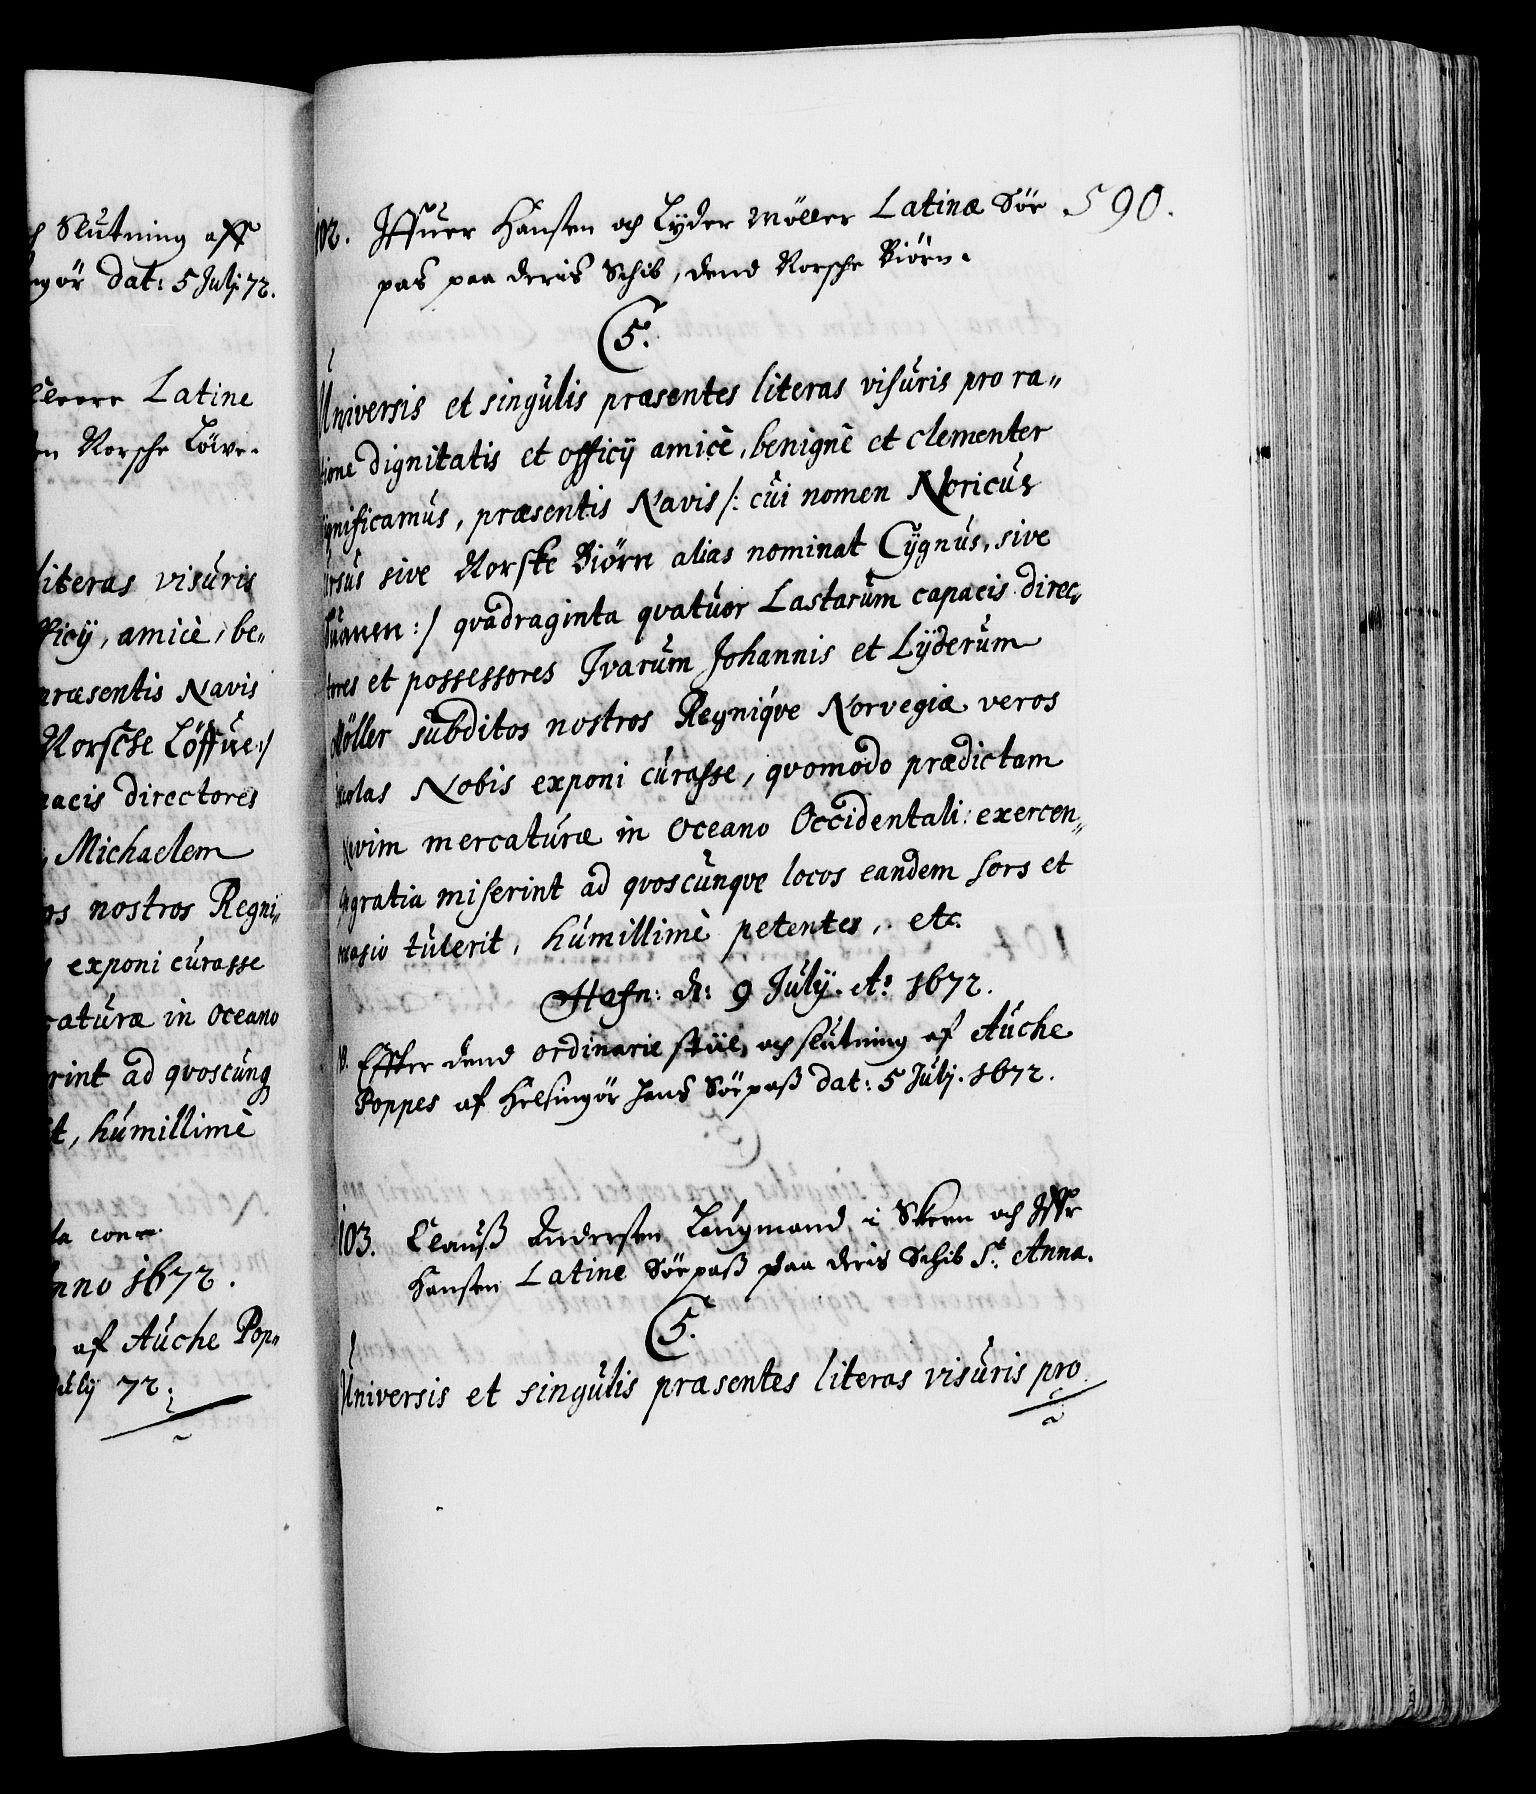 h Slutning aff
ngör dat: 5 Julj 72.
Latine
en Norsche Löwe.
literas visuris
fficij, amicè, be„
præsentis Navis
Norsche Löffue:/
pacis directores
, Michaelem
os nostros Regni„
exponi curasse
caturæ in Oceano
rint ad qvoscunq
t, humillimè
nno 1672.
af Auche Pop„
July 72.
590.
102. Iffuer Hansen och Lyder Möller Latinæ Sör
pas paa deris Schib, dend Norsche Biörn.
C5.
Universis et singulis præsentes literas visuris pro ra„
tione dignitatis et officij amicè, benignè et clementer
significamus, præsentis Navis /: cui nomen Noricus
Ursus sive Norske Biörn alias nominat Cygnus, sive
Suanen :/ qvadraginta qvatuor Lastarum capacis direc„
tores et possessores Ivarum Johannis et Lyderum
Möller subditos nostros Regniqve Norvegiæ veros
incolas Nobis exponi curasse, qvomodo prædictam
Navim mercaturæ in Oceano Occidentali exercen„
dæ gratia miserint ad qvoscunqve locos eandem sors et
occasio tulerit, humillimè petentes, etc.
Hafn: d: 9 July. Ao 1672.
Effter dend ordinarie stiil, och slutning af Auche
Poppes af Helsingör hans Sörpaß dat: 5 Julj. 1672.
103. Clauß Andersen Laugmand i Skeen och Iffr
Hansen Latine Sörpaß paa deris Schib St. Anna.
C5.
Universis et singulis præsentes literas visuris pro